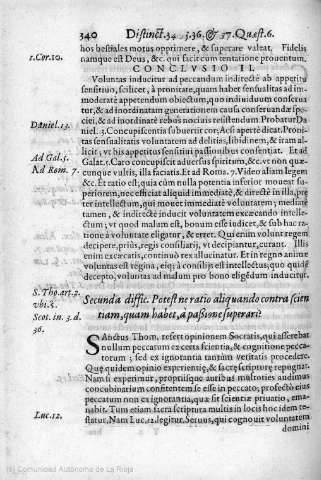 340 Distinct.34. 35.36. & 37. Quæst.6.
hos bestiales motus opprimere, & superare valeat. Fidelis
1.Cor.10. namque est Deus, &c. qui facit cum tentatione prouentum.
CONCLVSIO II.
Voluntas inducitur ad peccandum indirectè ab appetitu
sensitiuo, scilicet, à pronitate, quam habet sensualitas ad im-
moderatè appetendum obiectum, quo indiuiduum conserua-
tur, & ad inordinatam generationem causa conseruandæ spe-
ciei, & ad inordinatè rebus nociuis resistendum Probatur Da
Daniel.13. niel. 13. Concupiscentia subuertit cor. Ac si apertè dicat. Proni-
tas sensualitatis voluntatem ad delitias, libidinem, & iram al-
licit, vt his appetitus sensitiui passionibus consentiat. Et ad
Ad Gal.5. Galat. 5. Caro concupiscit aduersus spiritum, &c. vt non quæ-
Ad Rom. 7. cunque vultis, illa faciatis. Et ad Roma. 7. Video aliam legem
&c. Et ratio est, quia cùm nulla potentia inferior moueat su-
periorem, nec efficiat aliquid immediatè, & directè in illa, præ
ter intellectum, qui mouet immediatè voluntatem; mediatè
tamen, & indirectè inducit voluntatem excæcando intelle-
ctum; vt quod malum est, bonum esse iudicet, & sub hac ra-
tione à voluntate eligatur, & erret. Qui enim volunt regem
decipere, priùs, regis consiliarij, vt decipiantur, curant. Illis
enim excæcatis, continuò rex allucinatur. Et in regno animæ
voluntas est regina, eiq; à consilijs est intellectus, quo quidẽ
decepto, voluntas ad malum pro bono eligẽdum inducitur.
S. Tho. art.2.
vbi.s. Secunda diffic. Potest ne ratio aliquando contra scien
Scot. in. 3. d. tiam, quam habet, à passione superari?
36.
SAnctus Thom. refert opinionem Socratis, qui asserebat
nullum peccatum ex certa scientia, & cognitione pecca-
torum; sed ex ignorantia tantùm veritatis procedere.
Quæ quidem opinio experientiæ, & sacræ scripturæ repognat.
Nam si experimur, propriisque auribus multoties audimus
concubinariam consitentem se esse in peccato; profectò eius
peccatum non ex ignorantia, quæ sit scientiæ priuatio, ema-
nabit. Tum etiam sacra scriptura multis in locis hoc idem te-
Luc.12. statur. Nam Luc. 12. legitur. Seruus, qui cognouit voluntatem
domini
(c) Comunidad Autónoma de La Rioja